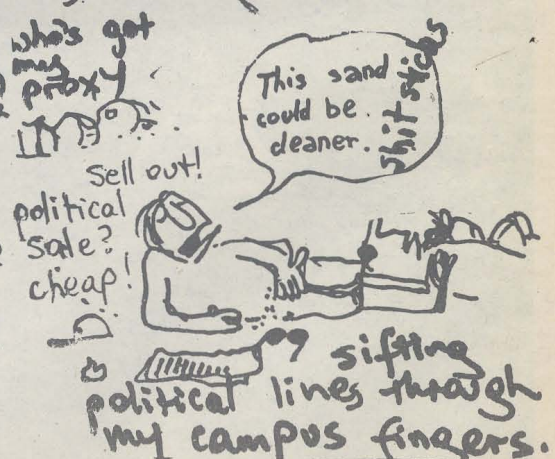 who's got
my
proxy
This sand
could be
cleaner.
shit sticks
sell out!
political
sale?
cheap!
sifting
political lines through
my campus fingers.